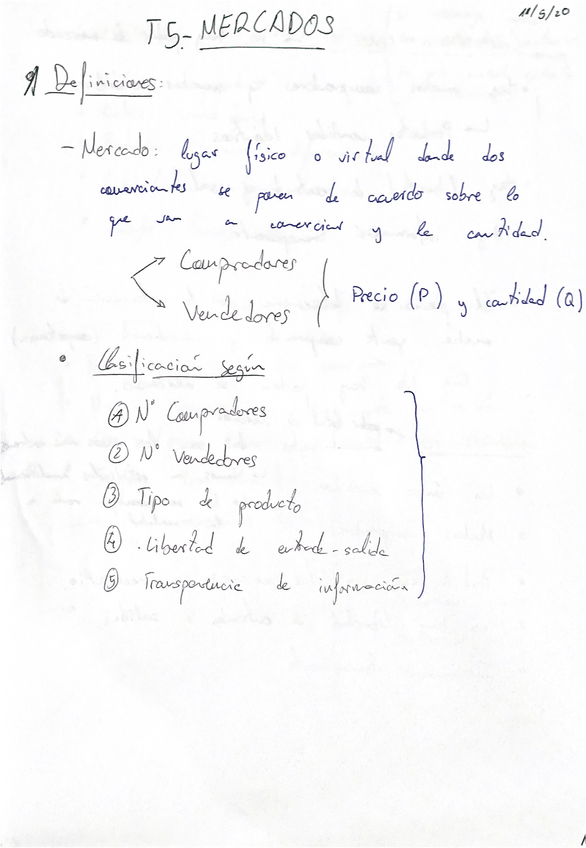 11/5/20
T5.- MERCADOS
1) Definiciones:
- Mercado: lugar físico o virtual donde dos
comerciantes se ponen de acuerdo sobre lo
que van a comerciar y la cantidad.
Compradores
Vendedores
Precio (P) y cantidad (Q)
• Clasificación según
① Nº Compradores
② Nº Vendedores
③ Tipo de producto
④ . Libertad de entrada-salida
⑤ Transparencia de información